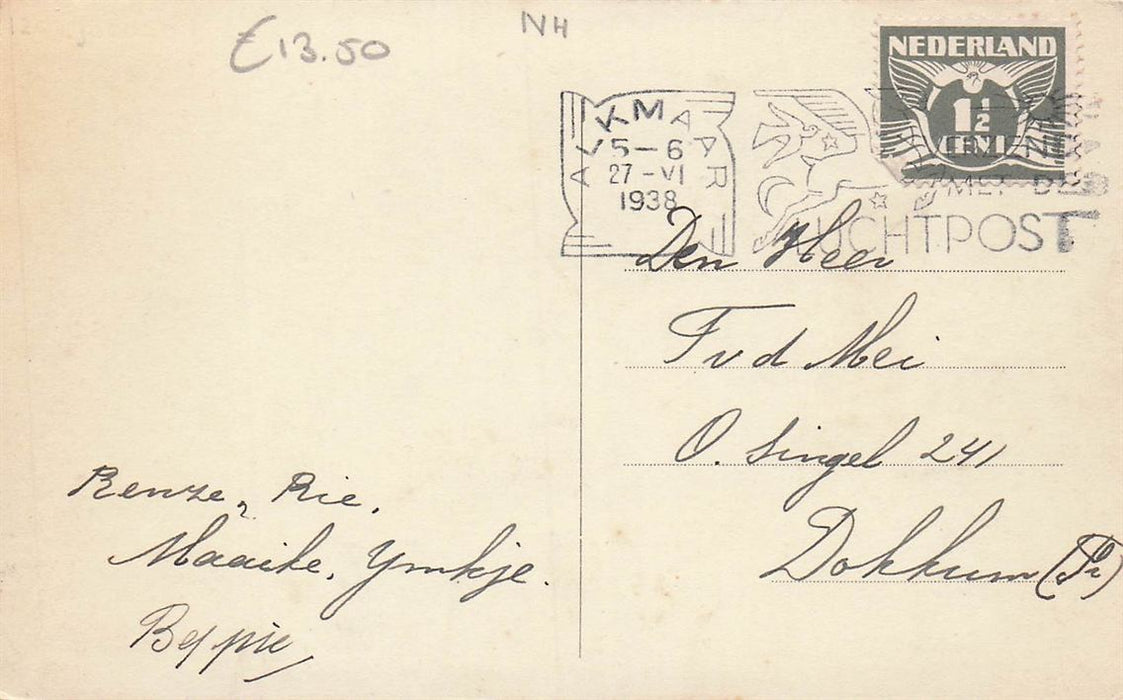 €13.50
NH
NEDERLAND
1½
CENT
ALKMAAR
5-6
27-VI
1938
MET DE
LUCHTPOST
Den Heer
F v d Mei
O. Singel 241
Dokkum (Fr)
Renze, Rie,
Maaike, Ymkje.
Beppie